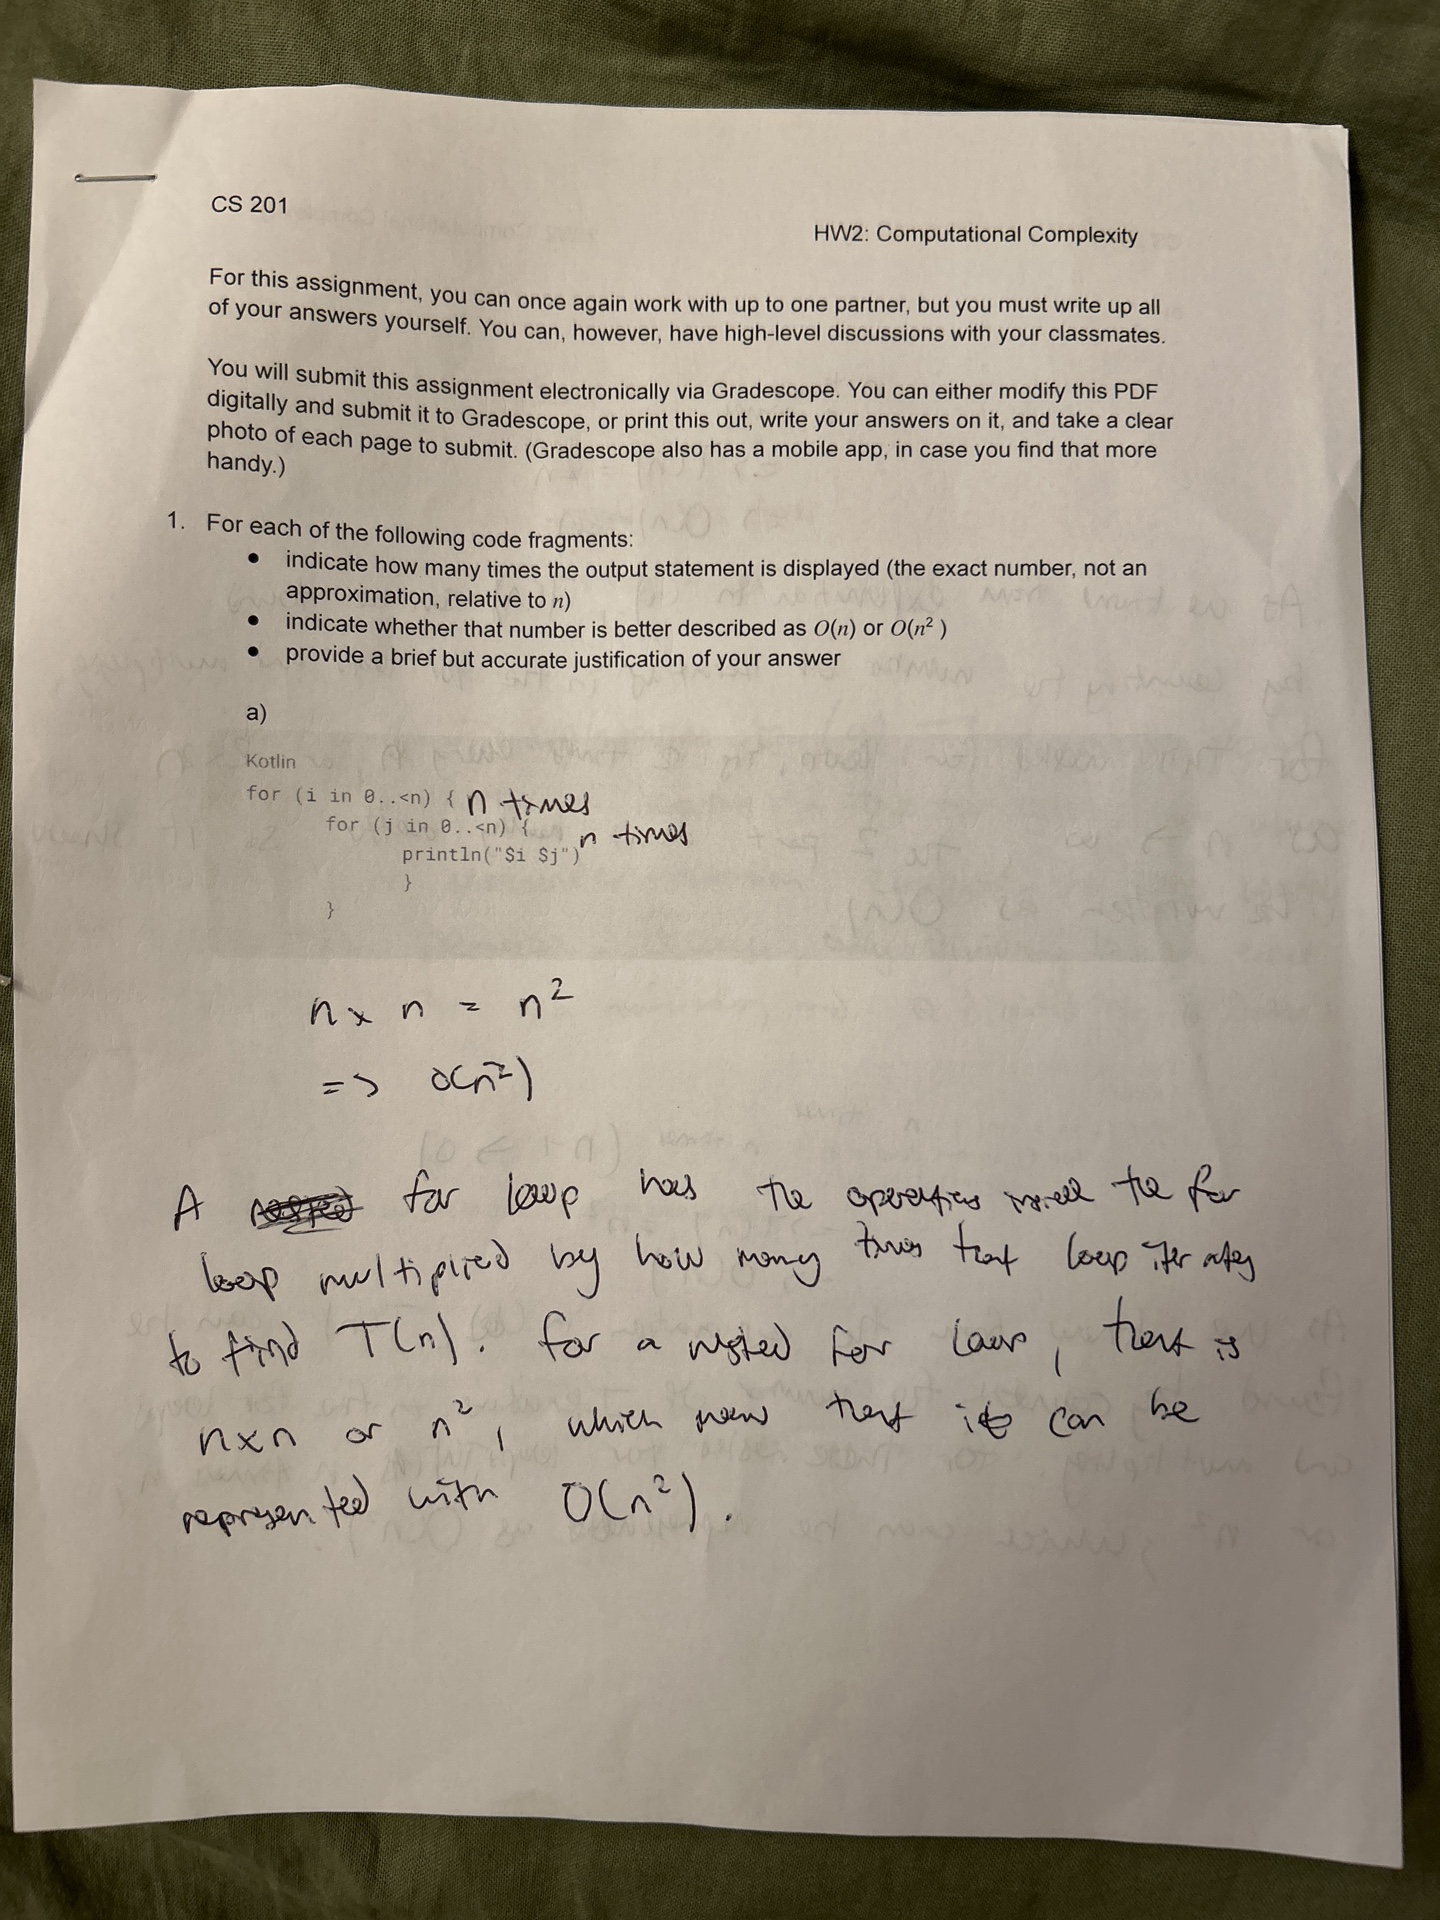 CS 201
HW2: Computational Complexity
For this assignment, you can once again work with up to one partner, but you must write up all
of your answers yourself. You can, however, have high-level discussions with your classmates.
You will submit this assignment electronically via Gradescope. You can either modify this PDF
digitally and submit it to Gradescope, or print this out, write your answers on it, and take a clear
photo of each page to submit. (Gradescope also has a mobile app, in case you find that more
handy.)
1. For each of the following code fragments:
● indicate how many times the output statement is displayed (the exact number, not an
approximation, relative to n)
● indicate whether that number is better described as O(n) or O(n²)
● provide a brief but accurate justification of your answer
a)
Kotlin
for (i in 0..<n) { n times
for (j in 0..<n) { n times
println("$i $j")
}
}
n x n = n²
=> O(n²)
A for loop has the operations inside the for
loop multiplied by how many times that loop iterates
to find T(n). For a nested for loop, that is
nxn or n², which means that it can be
represented with O(n²).